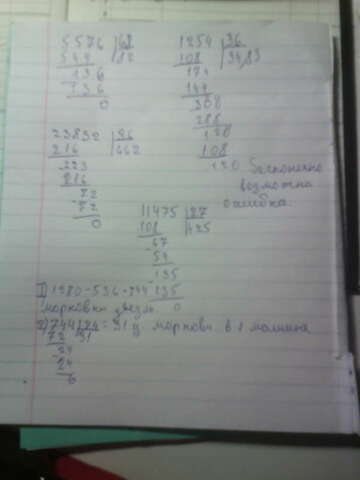 5576 | 68
544 | 82
136
136
0
1254 | 36
108 | 34,83
174
144
300
288
120
108
120
Бесконечно
возможна
ошибка.
23832 | 36
216 | 662
223
216
72
72
0
11475 | 27
108 | 425
67
54
135
135
0
1) 1280-536=744
морковки
2) 744:24=31 ц моркови в 1 машине
72 31
24
24
0